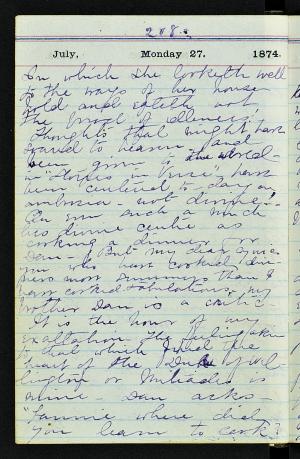 208.
July, Monday 27. 1874.
In which she looketh well
to the ways of her house
hold and eateth not
the bread of idleness.
Thoughts that might have
soared to heaven, and
been given to the world
in "Stories in Verse", have
been centered to day on
ambrosia - not dinner.
such a much
divine as
cooking a dinner for
Dan. But my dear
you who have cooked din
ners more than I
have cooked tabulations, my
brother Dan is a critic.
It is the hour of my
exaltation. The
to that which filled the
heart of the Duke of Wel
lington or Miltiades is
mine. Dan asks -
"Fannie where did
you learn to cook?